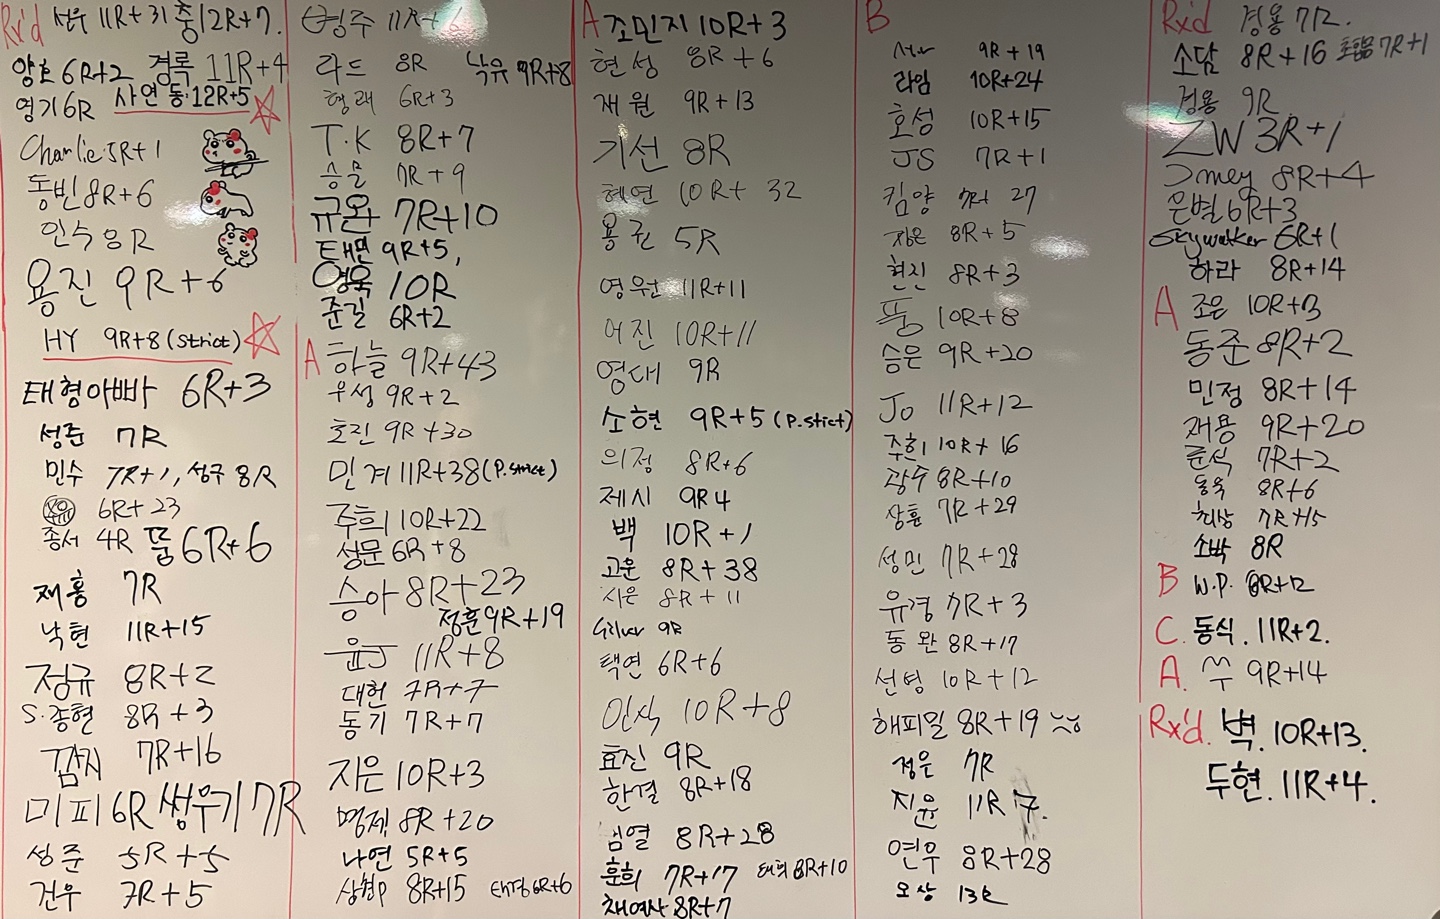 Rx'd 선우 11R+31 충 12R+7.
양호 6R+2 경록 11R+4
영기 6R 사연 동·12R+5
Charlie 5R+1
동빈 8R+6
인수 8R
용진 9R+6
HY 9R+8 (strict)
태형아빠 6R+3
성준 7R
민수 7R+1, 성구 8R
6R+23
종서 4R 뚬 6R+6
재홍 7R
낙현 11R+15
정규 8R+2
S.종현 8R+3
깜지 7R+16
미피 6R 쌩우기 7R
성준 5R+5
건우 7R+5
영주 11R+6
라드 8R 낙유 9R+8
형래 6R+3
T.K 8R+7
승물 7R+9
규완 7R+10
태민 9R+5,
영욱 10R
준길 6R+2
A 하늘 9R+43
우성 9R+2
호진 9R+30
민계 11R+38 (P.strict)
주희 10R+22
성문 6R+8
승아 8R+23
정훈 9R+19
윤J 11R+8
대헌 7R+7
동기 7R+7
지은 10R+3
명제 8R+20
나연 5R+5
상협P 8R+15 태경 6R+6
A 조민지 10R+3
현성 8R+6
재원 9R+13
기선 8R
혜연 10R+32
용권 5R
영원 11R+11
어진 10R+11
영대 9R
소현 9R+5 (P.stict)
의정 8R+6
제시 9R4
백 10R+1
고운 8R+38
시은 8R+11
Gilver 9R
택연 6R+6
인식 10R+8
효진 9R
한결 8R+18
심열 8R+28
훈희 7R+17 태혁 8R+10
채여사 8R+7
B
9R+19
라임 10R+24
호성 10R+15
JS 7R+1
킴양 7R+ 27
지은 8R+5
현진 8R+3
뚱 10R+8
승은 9R+20
Jo 11R+12
주희 10R+16
광주 8R+10
상훈 7R+29
성민 7R+28
유경 7R+3
동완 8R+17
선영 10R+12
해피밀 8R+19
정은 7R
지윤 11R 17.
연우 8R+28
오상 13R
Rx'd 경용 7R.
소담 8R+16 7R+1
경용 9R
ZW 3R+1
Jmey 8R+4
은별 6R+3
Skywalker 6R+1
하라 8R+14
A 조은 10R+3
동준 8R+2
민정 8R+14
재용 9R+20
준식 7R+2
동욱 8R+6
희상 7R+15
소박 8R
B W.P. 6R+12
C. 동식. 11R+2.
A. 쑤 9R+14
Rx'd. 벽. 10R+13.
두현. 11R+4.